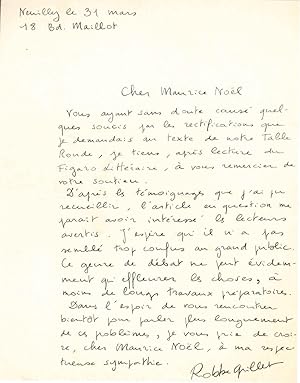 Neuilly le 31 mars
18 Bd. Maillot
Cher Maurice Noël
Vous ayant sans doute causé quel-
ques soucis par les rectifications que
je demandais au texte de notre Table
Ronde, je tiens, après lecture du
Figaro Littéraire, à vous remercier de
votre soutien.
D'après les témoignages que j'ai pu
recueillir, l'article en question me
paraît avoir intéressé les lecteurs
avertis. J'espère qu'il n'a pas
semblé trop confus au grand public.
Ce genre de débat ne peut évidem-
ment qu'effleurer les choses, à
moins de longs travaux préparatoires.
Dans l'espoir de vous rencontrer
bientôt pour parler plus longuement
de ces problèmes, je vous prie de croi-
re, cher Maurice Noël, à ma respec-
tueuse sympathie.
Robbe-Grillet